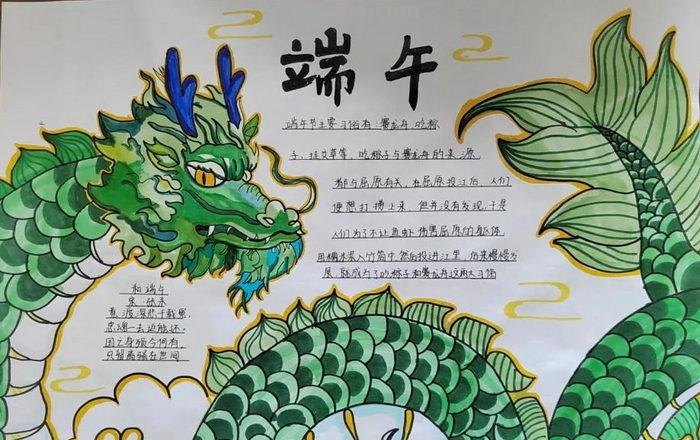 端午
端午节主要习俗有:赛龙舟、吃粽
子、挂艾草等,吃粽子与赛龙舟的来源
都与屈原有关,在屈原投江后,人们
便想打捞上来,但并没有发现,于是
人们为了不让鱼虾伤害屈原的躯体,
用糯米装入竹筒中,然后投进江里,后来慢慢发
展,就成为了吃粽子和赛龙舟这两大习俗
和端午
宋 张耒
竞渡深悲千载冤,
忠魂一去讵能还。
国亡身殒今何有,
只留离骚在世间